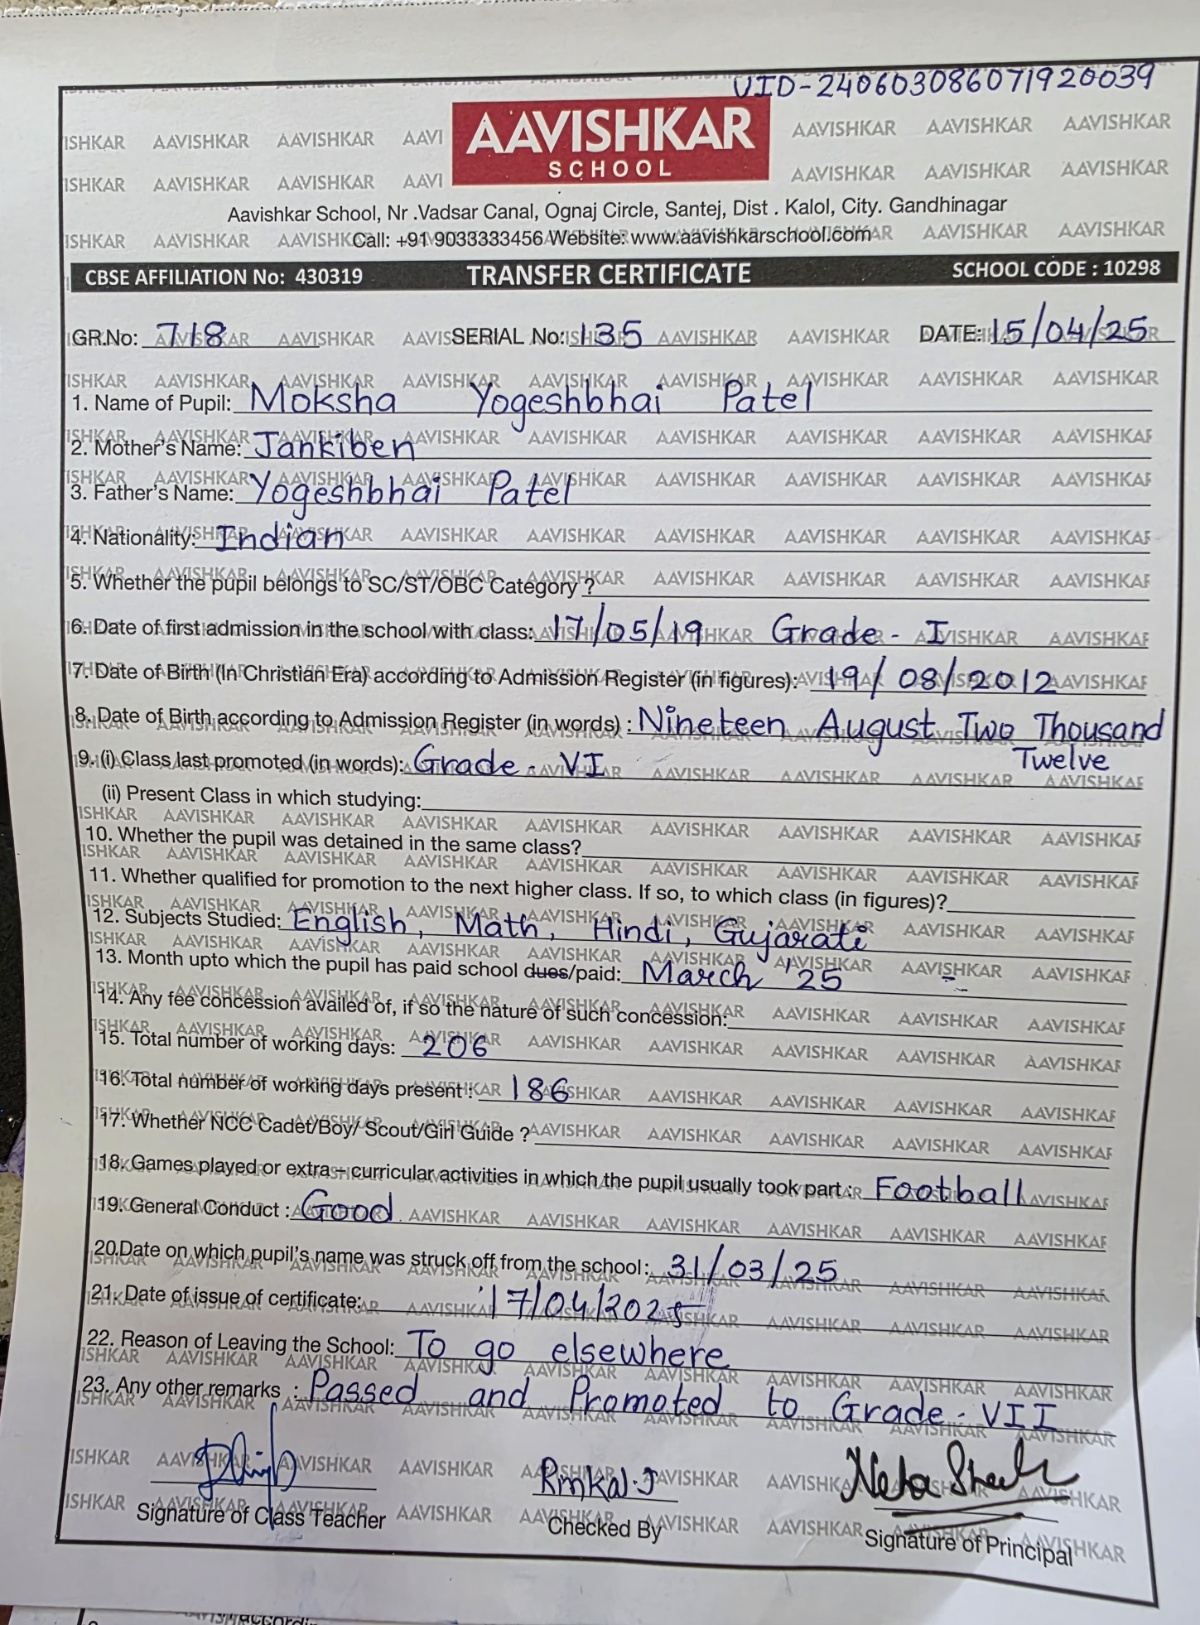 UID-240603086071920039
AAVISHKAR
SCHOOL
Aavishkar School, Nr .Vadsar Canal, Ognaj Circle, Santej, Dist . Kalol, City. Gandhinagar
Call: +91 9033333456 Website: www.aavishkarschool.com
CBSE AFFILIATION No: 430319 TRANSFER CERTIFICATE SCHOOL CODE : 10298
GR.No: 718 SERIAL No: 135 DATE: 15/04/25
1. Name of Pupil: Moksha Yogeshbhai Patel
2. Mother's Name: Jankiben
3. Father's Name: Yogeshbhai Patel
4. Nationality: Indian
5. Whether the pupil belongs to SC/ST/OBC Category ?
6. Date of first admission in the school with class: 17/05/19 Grade - I
7. Date of Birth (In Christian Era) according to Admission Register (in figures): 19/08/2012
8. Date of Birth according to Admission Register (in words) : Nineteen August Two Thousand
Twelve
9. (i) Class last promoted (in words): Grade - VI
(ii) Present Class in which studying:
10. Whether the pupil was detained in the same class?
11. Whether qualified for promotion to the next higher class. If so, to which class (in figures)?
12. Subjects Studied: English, Math, Hindi, Gujarati
13. Month upto which the pupil has paid school dues/paid: March '25
14. Any fee concession availed of, if so the nature of such concession:
15. Total number of working days: 206
16. Total number of working days present : 186
17. Whether NCC Cadet/Boy/ Scout/Girl Guide ?
18. Games played or extra – curricular activities in which the pupil usually took part : Football
19. General Conduct : Good
20.Date on which pupil's name was struck off from the school: 31/03/25
21. Date of issue of certificate: 17/04/2025
22. Reason of Leaving the School: To go elsewhere
23. Any other remarks : Passed and Promoted to Grade - VII
Rinkal.J Neha Sheth
Signature of Class Teacher Checked By Signature of Principal